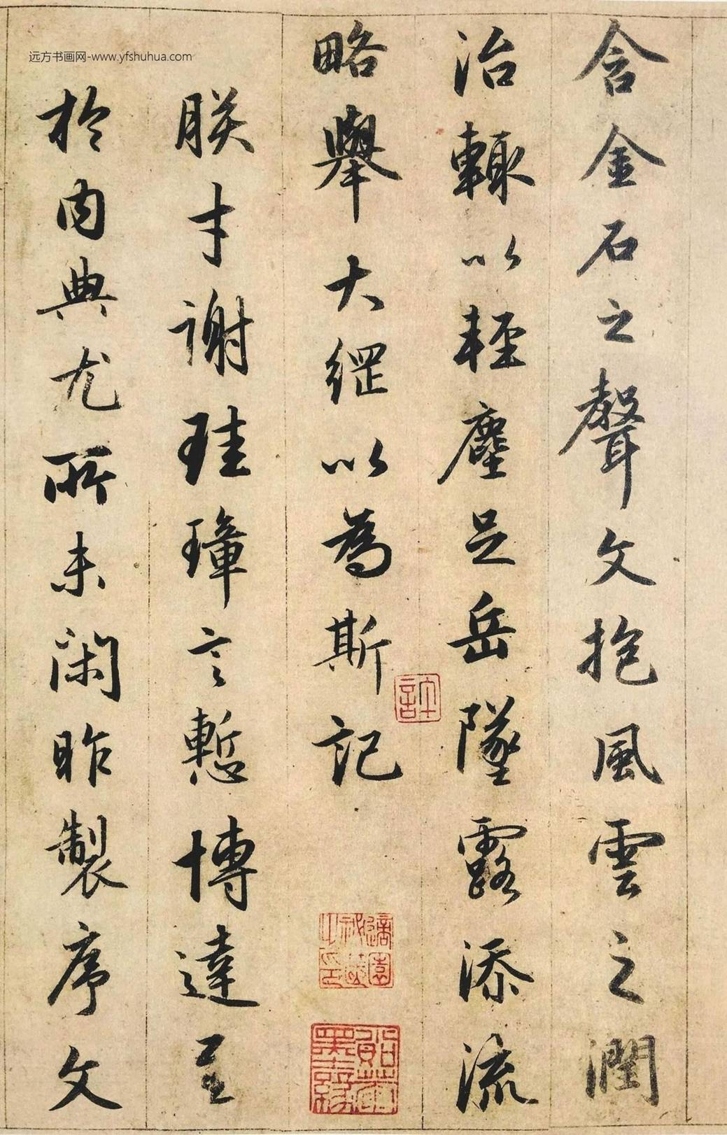 远方书画网-www.yfshuhua.com
含金石之聲文抱風雲之潤
治輙以輕塵足岳墜露添流
略舉大綱以為斯記
朕才謝珪璋言慙博達至
於內典尤所未閑昨製序文
許